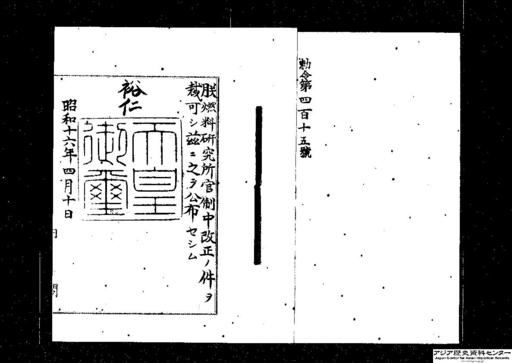 勅令第四百十五號
朕燃料研究所官制中改正ノ件ヲ
裁可シ茲ニ之ヲ公布セシム
裕仁
天皇
御璽
昭和十六年四月十日
アジア歴史資料センター
Japan Center for Asian Historical Records